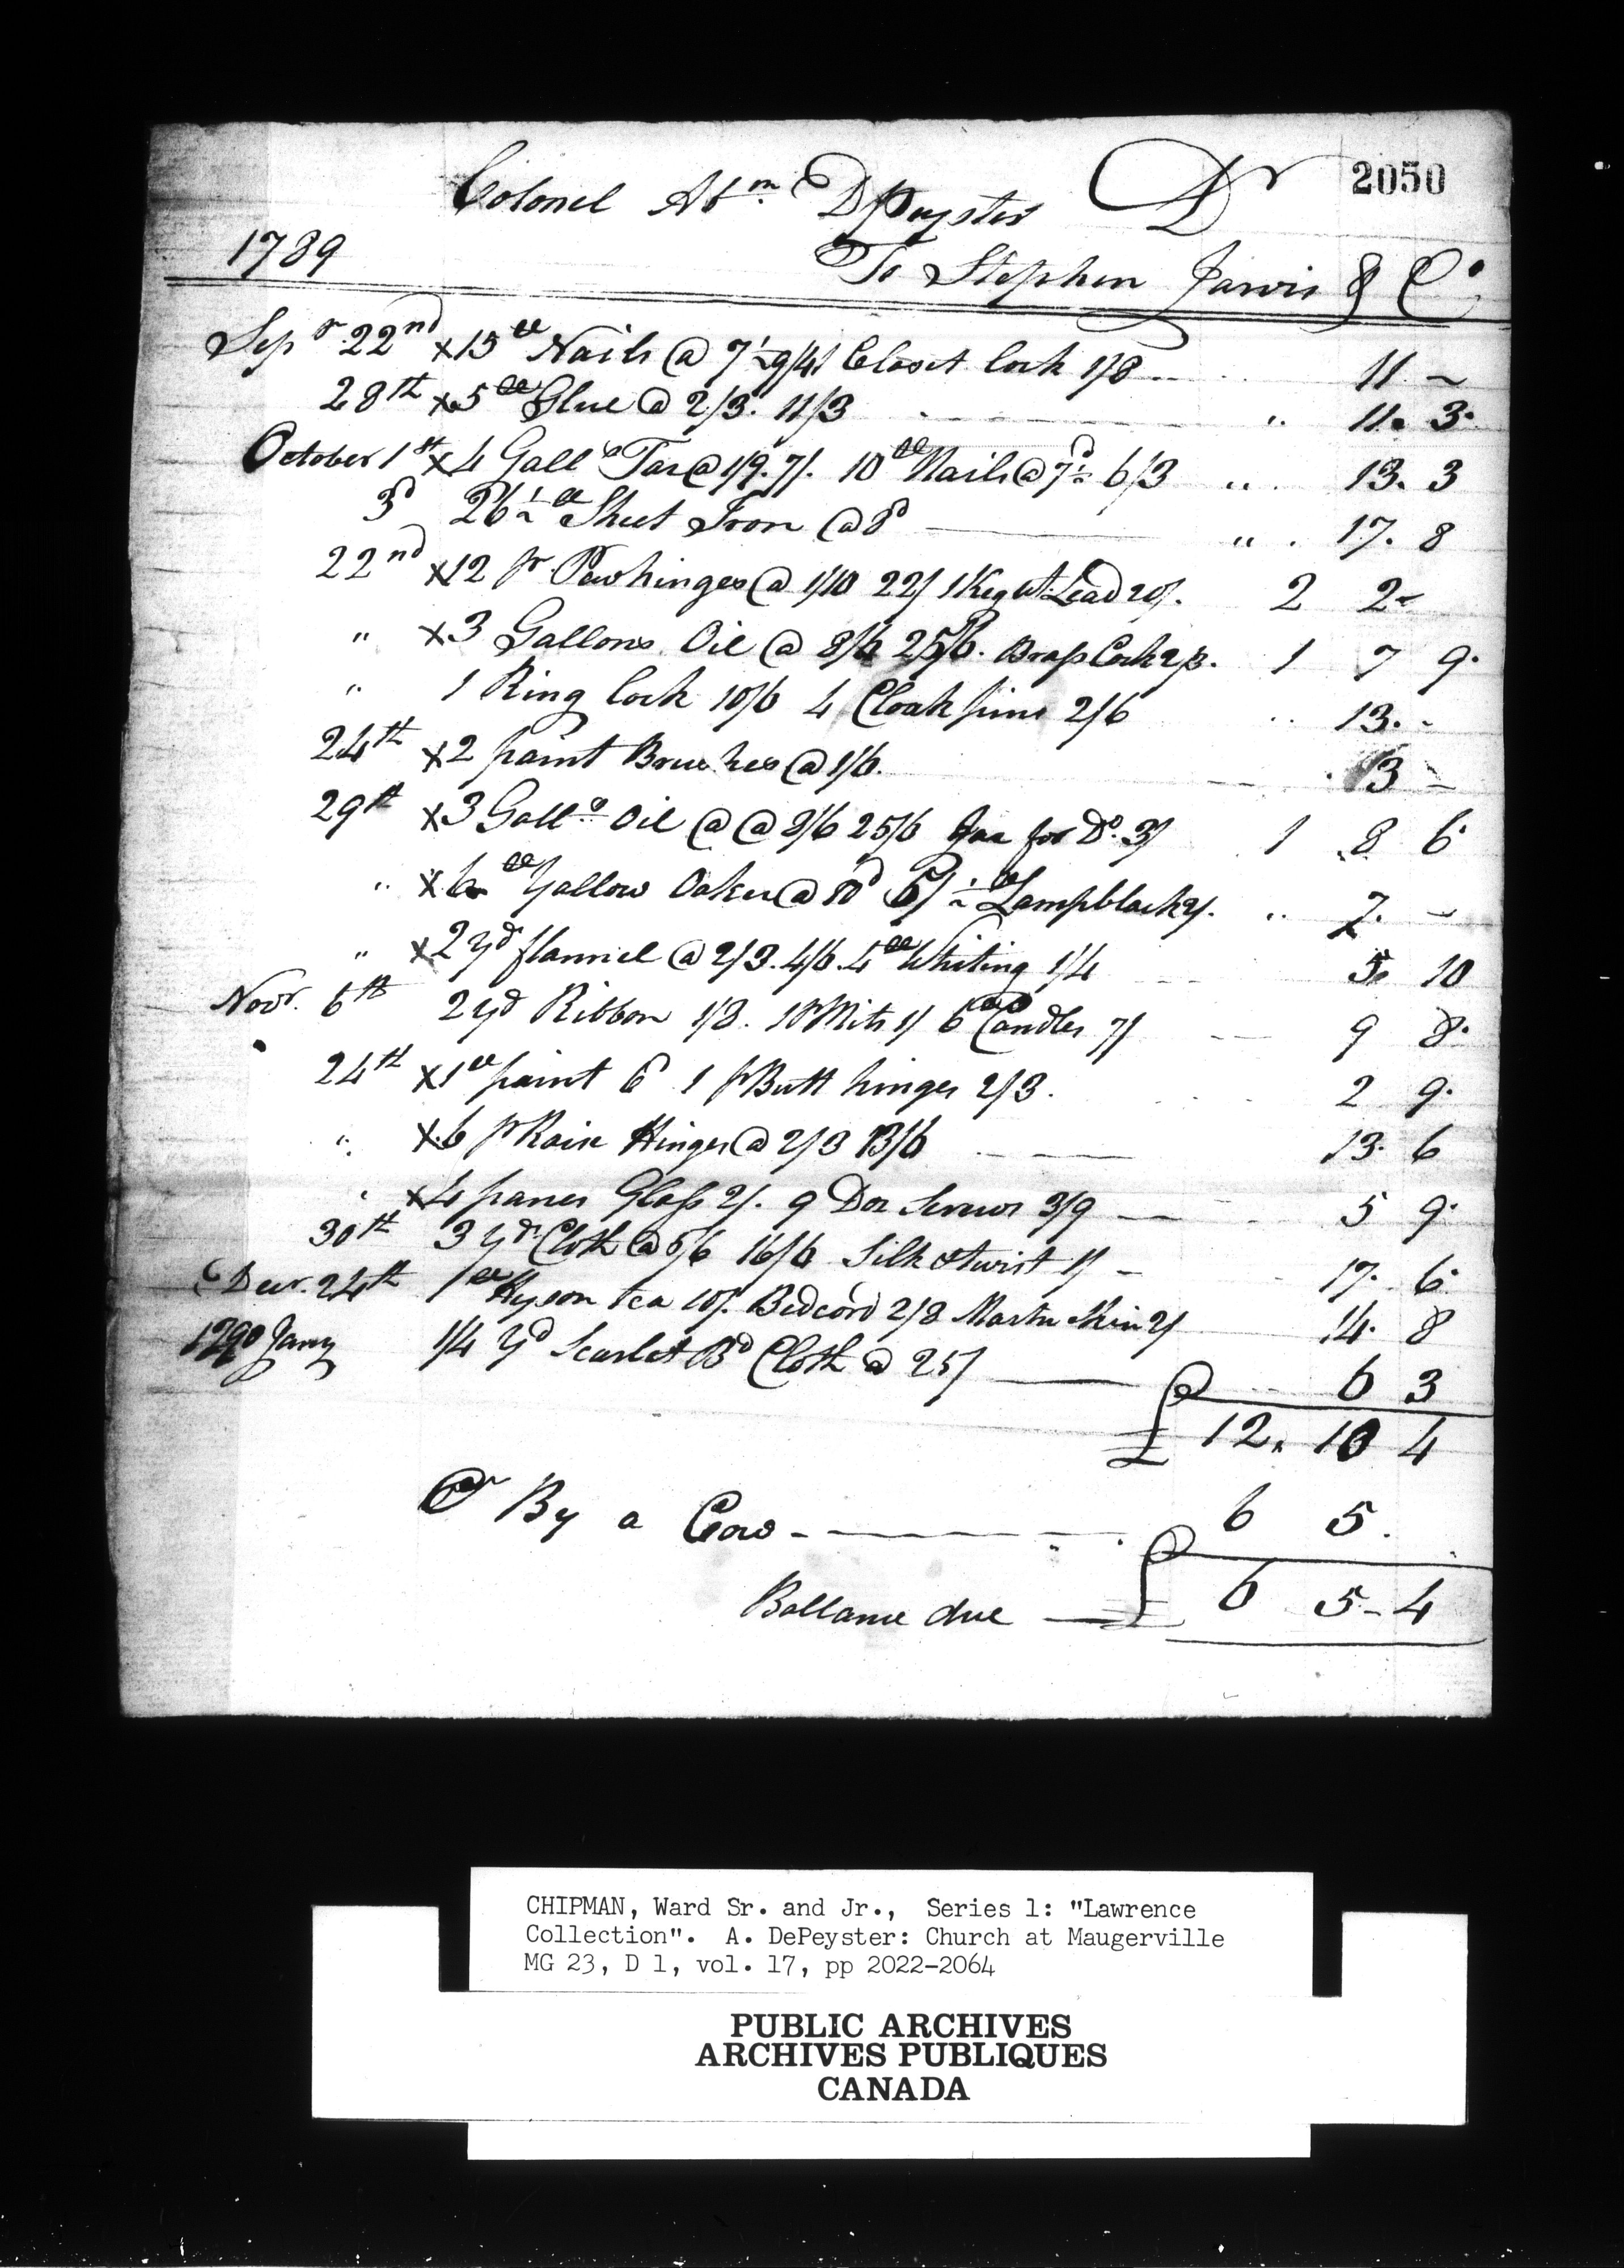 2050
Colonel Abm. DPeyster Dr
1789 To Stephen Jarvis & Co
Sepr 22nd x15 lb Nails @ 7½ 9/4½ Closet lock 1/8 11 -
28th x5 lb Glue @ 2/3. 11/3 " 11. 3.
October 1st x4 Galls Tar @ 1/9. 7/. 10 lb Nails @ 7½d 6/3 " 13. 3
3d 26½ lb Sheet Iron @ 8d " 17. 8
22nd x12 pr Pewhinges @ 1/10 22/ 1 Keg Wt. Lead 20/. 2 2 -
" x3 Gallons Oil @ 8/6 25/6. Brass Cock 2/3. 1 7 9.
" 1 Ring lock 10/6 4 Cloak pins 2/6 " 13. -
24th x2 paint Brushes @ 1/6. 3 -
29th x3 Galls Oil @ @ 8/6 25/6 Jar for Do. 3/ 1 8 6
" x6 lb Yallow Oaker @ 10d 5/ ½ lb Lampblack 2/. " 7. -
" x2 yd flannel @ 2/3. 4/6. 4 lb Whiting 1/4 5. 10
Novr. 6th 2 yd Ribbon 1/8. 1 pr Mits 1/ 6 lb Candles 7/ 9 8.
24th x1 lb paint 6d 1 pr Butt hinges 2/3. 2 9.
" x6 pr Raix Hinges @ 2/3 13/6 13. 6
" x4 panes Glass 2/. 9 Doz Screws 3/9 5 9.
30th 3 yds Cloth @ 5/6 16/6 Silk & twist 1/ 17. 6.
Decr. 24th 1 lb Hyson tea 10/. Bedcord 2/8 Martn Skin 2/ 14. 8
1790 Jany 1/4 yd Scarlet Bd Cloth @ 25/ 6 3
£ 12. 10 4
Cr By a Cow 6 5.
Ballance due £ 6 5 - 4
CHIPMAN, Ward Sr. and Jr., Series 1: "Lawrence
Collection". A. DePeyster: Church at Maugerville
MG 23, D 1, vol. 17, pp 2022-2064
PUBLIC ARCHIVES
ARCHIVES PUBLIQUES
CANADA